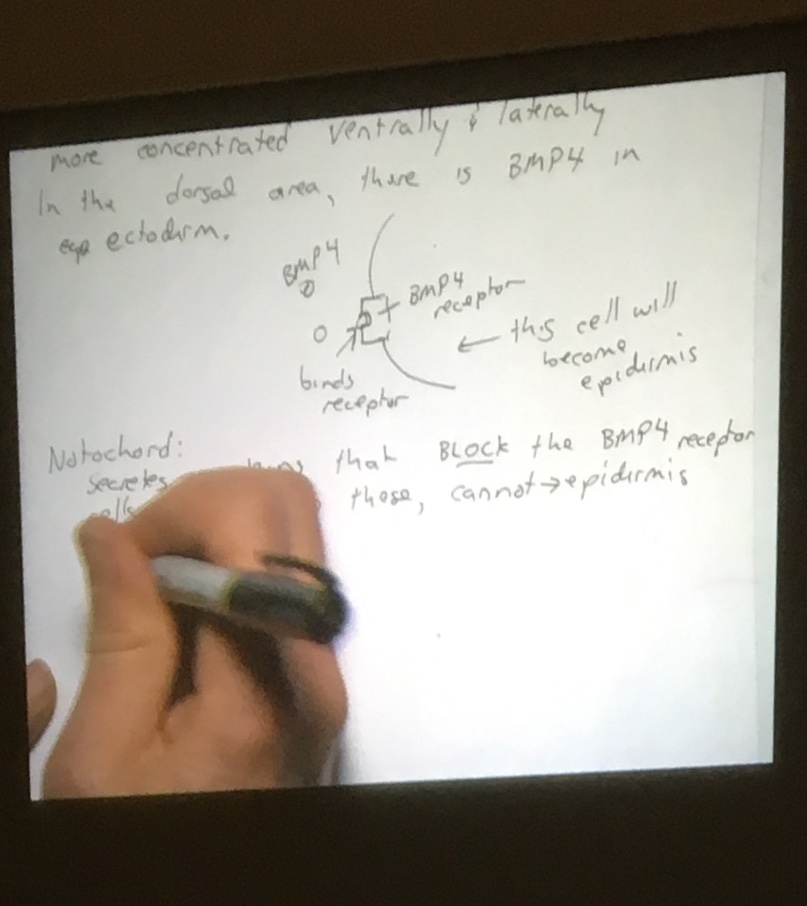 more concentrated ventrally & laterally
In the dorsal area, there is BMP4 in
ectoderm.
BMP4
BMP4
receptor
← this cell will
become
epidermis
binds
receptor
Notochord:
secretes that BLOCK the BMP4 receptor
cells these, cannot→epidermis